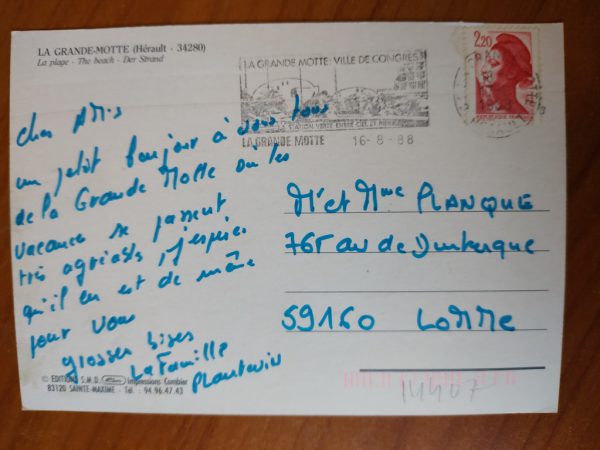 LA GRANDE-MOTTE (Hérault - 34280)
La plage - The beach - Der Strand
LA GRANDE MOTTE: VILLE DE CONGRES
LA GRANDE MOTTE 16-8-88
2,20
cher Amis
un petit bonjour à vous tous
de la Grande Motte où les
vacance se passent
très agréable, j'espère
qu'il en est de même
pour vous
grosses bises
La famille
M' et Mme PLANQUE
765 av de Dunkerque
59160 LOMME
© EDITIONS S.M.D. Impressions Combier
83120 SAINTE-MAXIME - Tél. : 94 96.47.43
14407